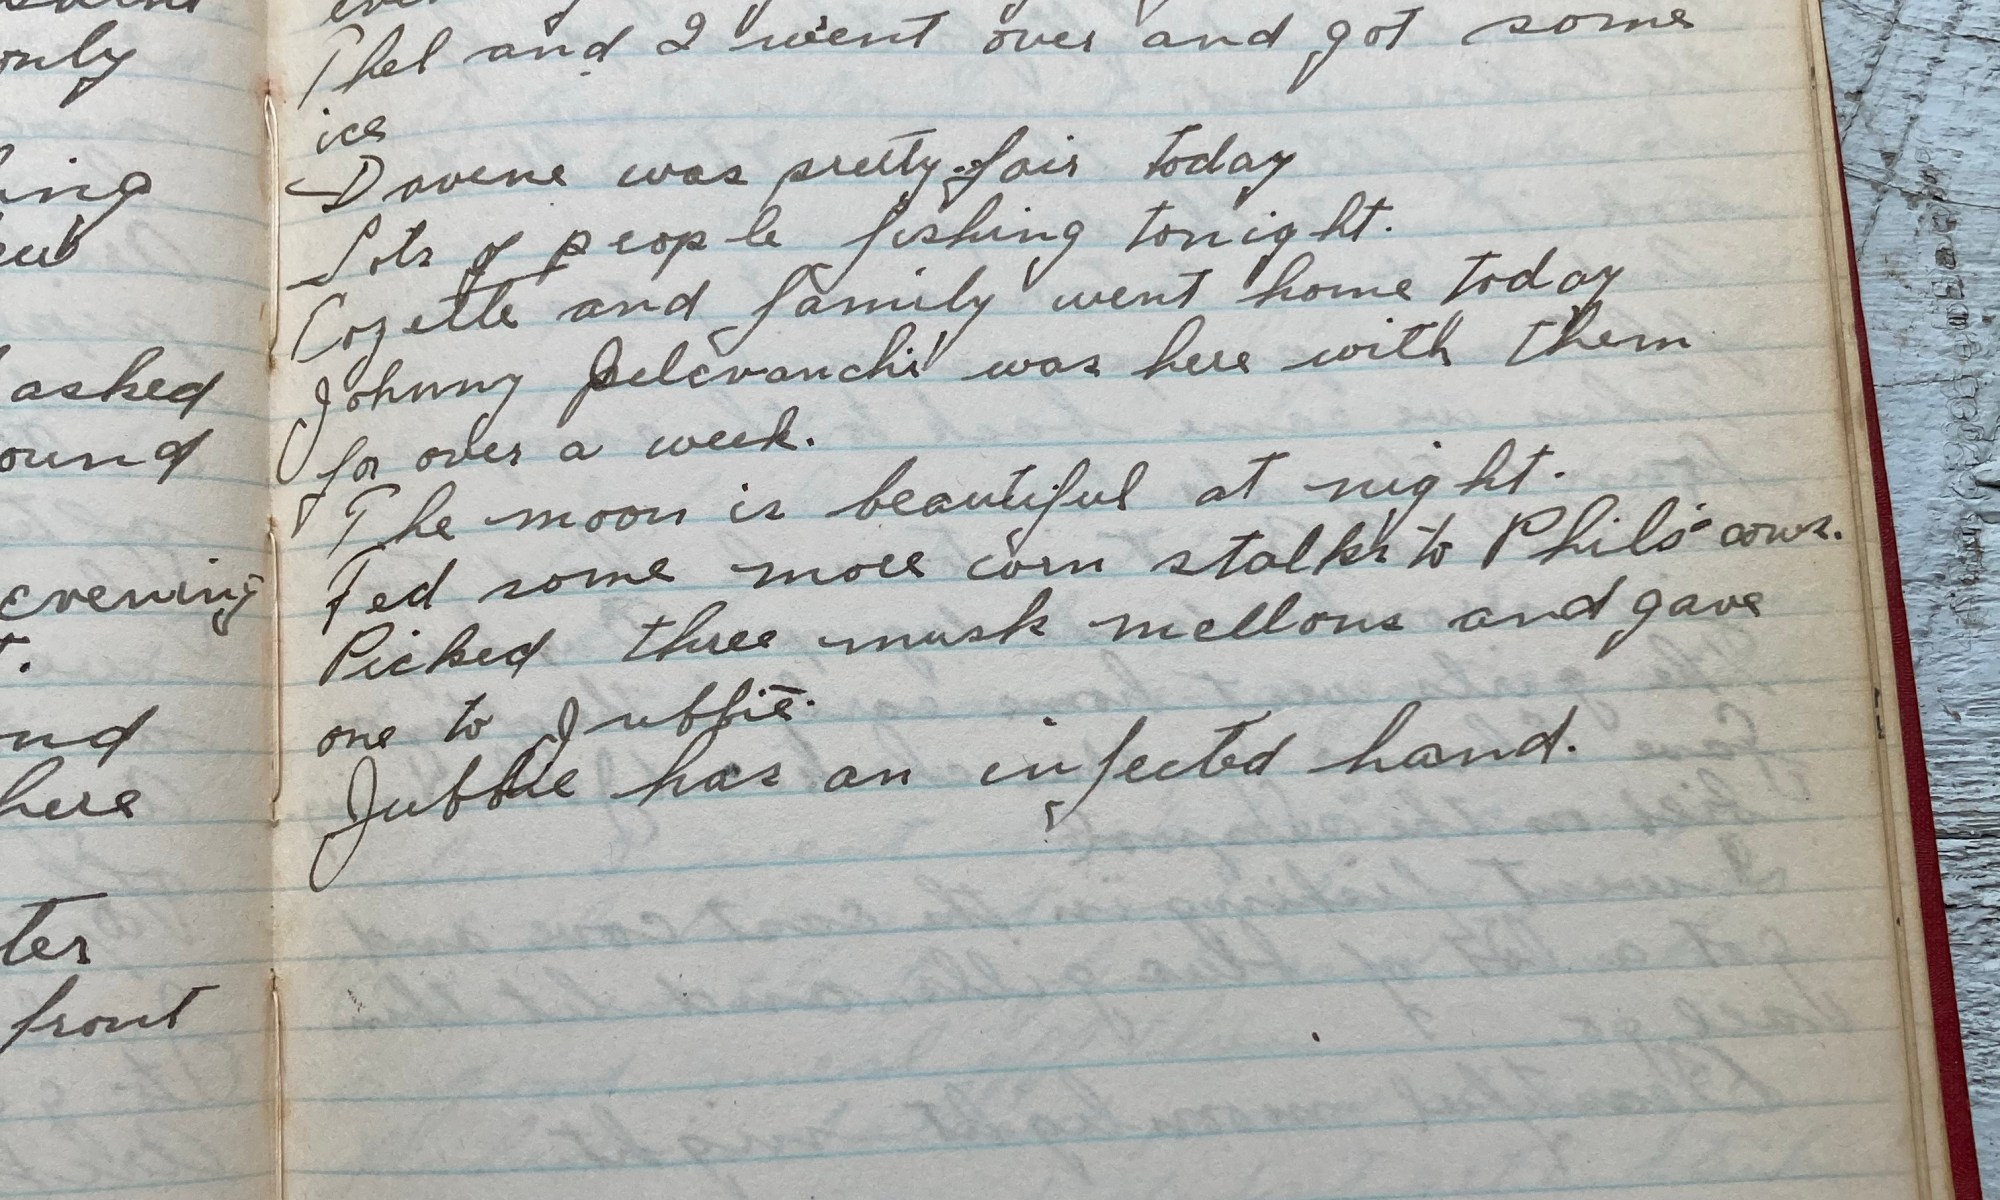 only
ing
asked
ound
evening
nd
here
ter
front
Thel and I went over and got some
ice
Davene was pretty fair today
Lots of people fishing tonight.
Cozette and family went home today
Johnny was here with them
for over a week.
The moon is beautiful at night.
Fed some more corn stalks to Phils cows.
Picked three musk mellons and gave
one to Jubbie.
Jubbie has an infected hand.